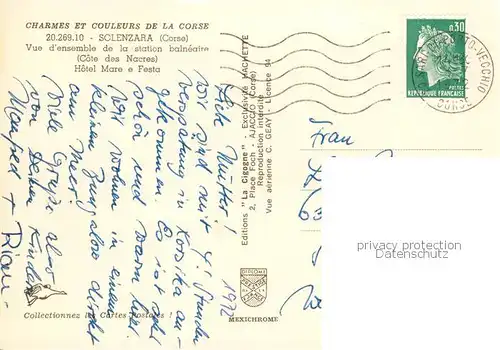 CHARMES ET COULEURS DE LA CORSE
20.269.10 - SOLENZARA (Corse)
Vue d'ensemble de la station balnéaire
(Côte des Nacres)
Hôtel Mare e Festa
0,30
POSTES
REPUBLIQUE FRANÇAISE
PORTO-VECCHIO
CORSE
Liebe Mutter!
Wir sind mit 4 Stunden
Verspätung in Korsika an-
gekommen. Es ist sehr
schön und warm hier.
Wir wohnen in einem
kleinen Bungalow direkt
am Meer.
Viele Grüße also
von Deinen Kindern
Manfred +
1972
Editions "La Cigogne" - Exclusivité HACHETTE
2, Place Foch - AJACCIO (Corse)
Reproduction interdite
Vue aérienne C. GEAY - Licence 94
Frau
63
privacy protection
Datenschutz
DIPLOME
PRESTIGE
DE LA
FRANCE
MEXICHROME
Collectionnez les Cartes Postales !